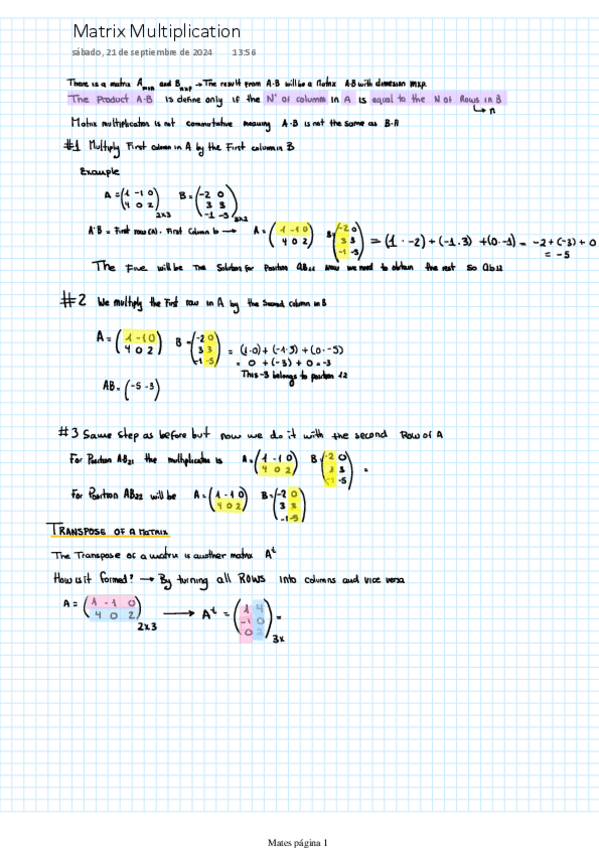 Matrix Multiplication
sábado, 21 de septiembre de 2024 13:56
There is a matrix A mxn and B nxp → The result from A·B will be a Matrix A·B with dimension mxp.
The Product A·B is define only if the Nº of column in A is equal to the N of Rows in B
↳ n
Matrix multiplication is not commutative meaning A·B is not the same as B·A
#1 Multiply First column in A by the First column in B
Example
A = (1 -1 0 / 4 0 2) 2x3 B = (-2 0 / 3 3 / -1 -5) 3x2
A·B = First row (A). First Column b → A = (1 -1 0 / 4 0 2) B (-2 0 / 3 3 / -1 -5) = (1 · -2) + (-1.3) + (0.-1) = -2+(-3)+0
= -5
The Five will be The Solution for Position AB11 now we need to obtain the rest so ab12
#2 We multiply the First row in A by the Second column in B
A = (1 -1 0 / 4 0 2) B = (-2 0 / 3 3 / -1 -5) = (1·0) + (-1·3) + (0·-5)
= 0 + (-3) + 0 = -3
This -3 belongs to position 12
AB = (-5 -3)
#3 Same step as before but now we do it with the second Row of A
For Position AB21 the multiplication is A = (1 -1 0 / 4 0 2) B (-2 0 / 3 3 / -1 -5) =
For Position AB22 will be A = (1 -1 0 / 4 0 2) B = (-2 0 / 3 3 / -1 -5)
TRANSPOSE OF A MATRIX
The Transpose of a matrix is another matrix A^t
How is it formed? → By turning all ROWS into columns and vice versa
A = (1 -1 0 / 4 0 2) 2x3 → A^t = (1 4 / -1 0 / 0 2) = 3x
Mates página 1